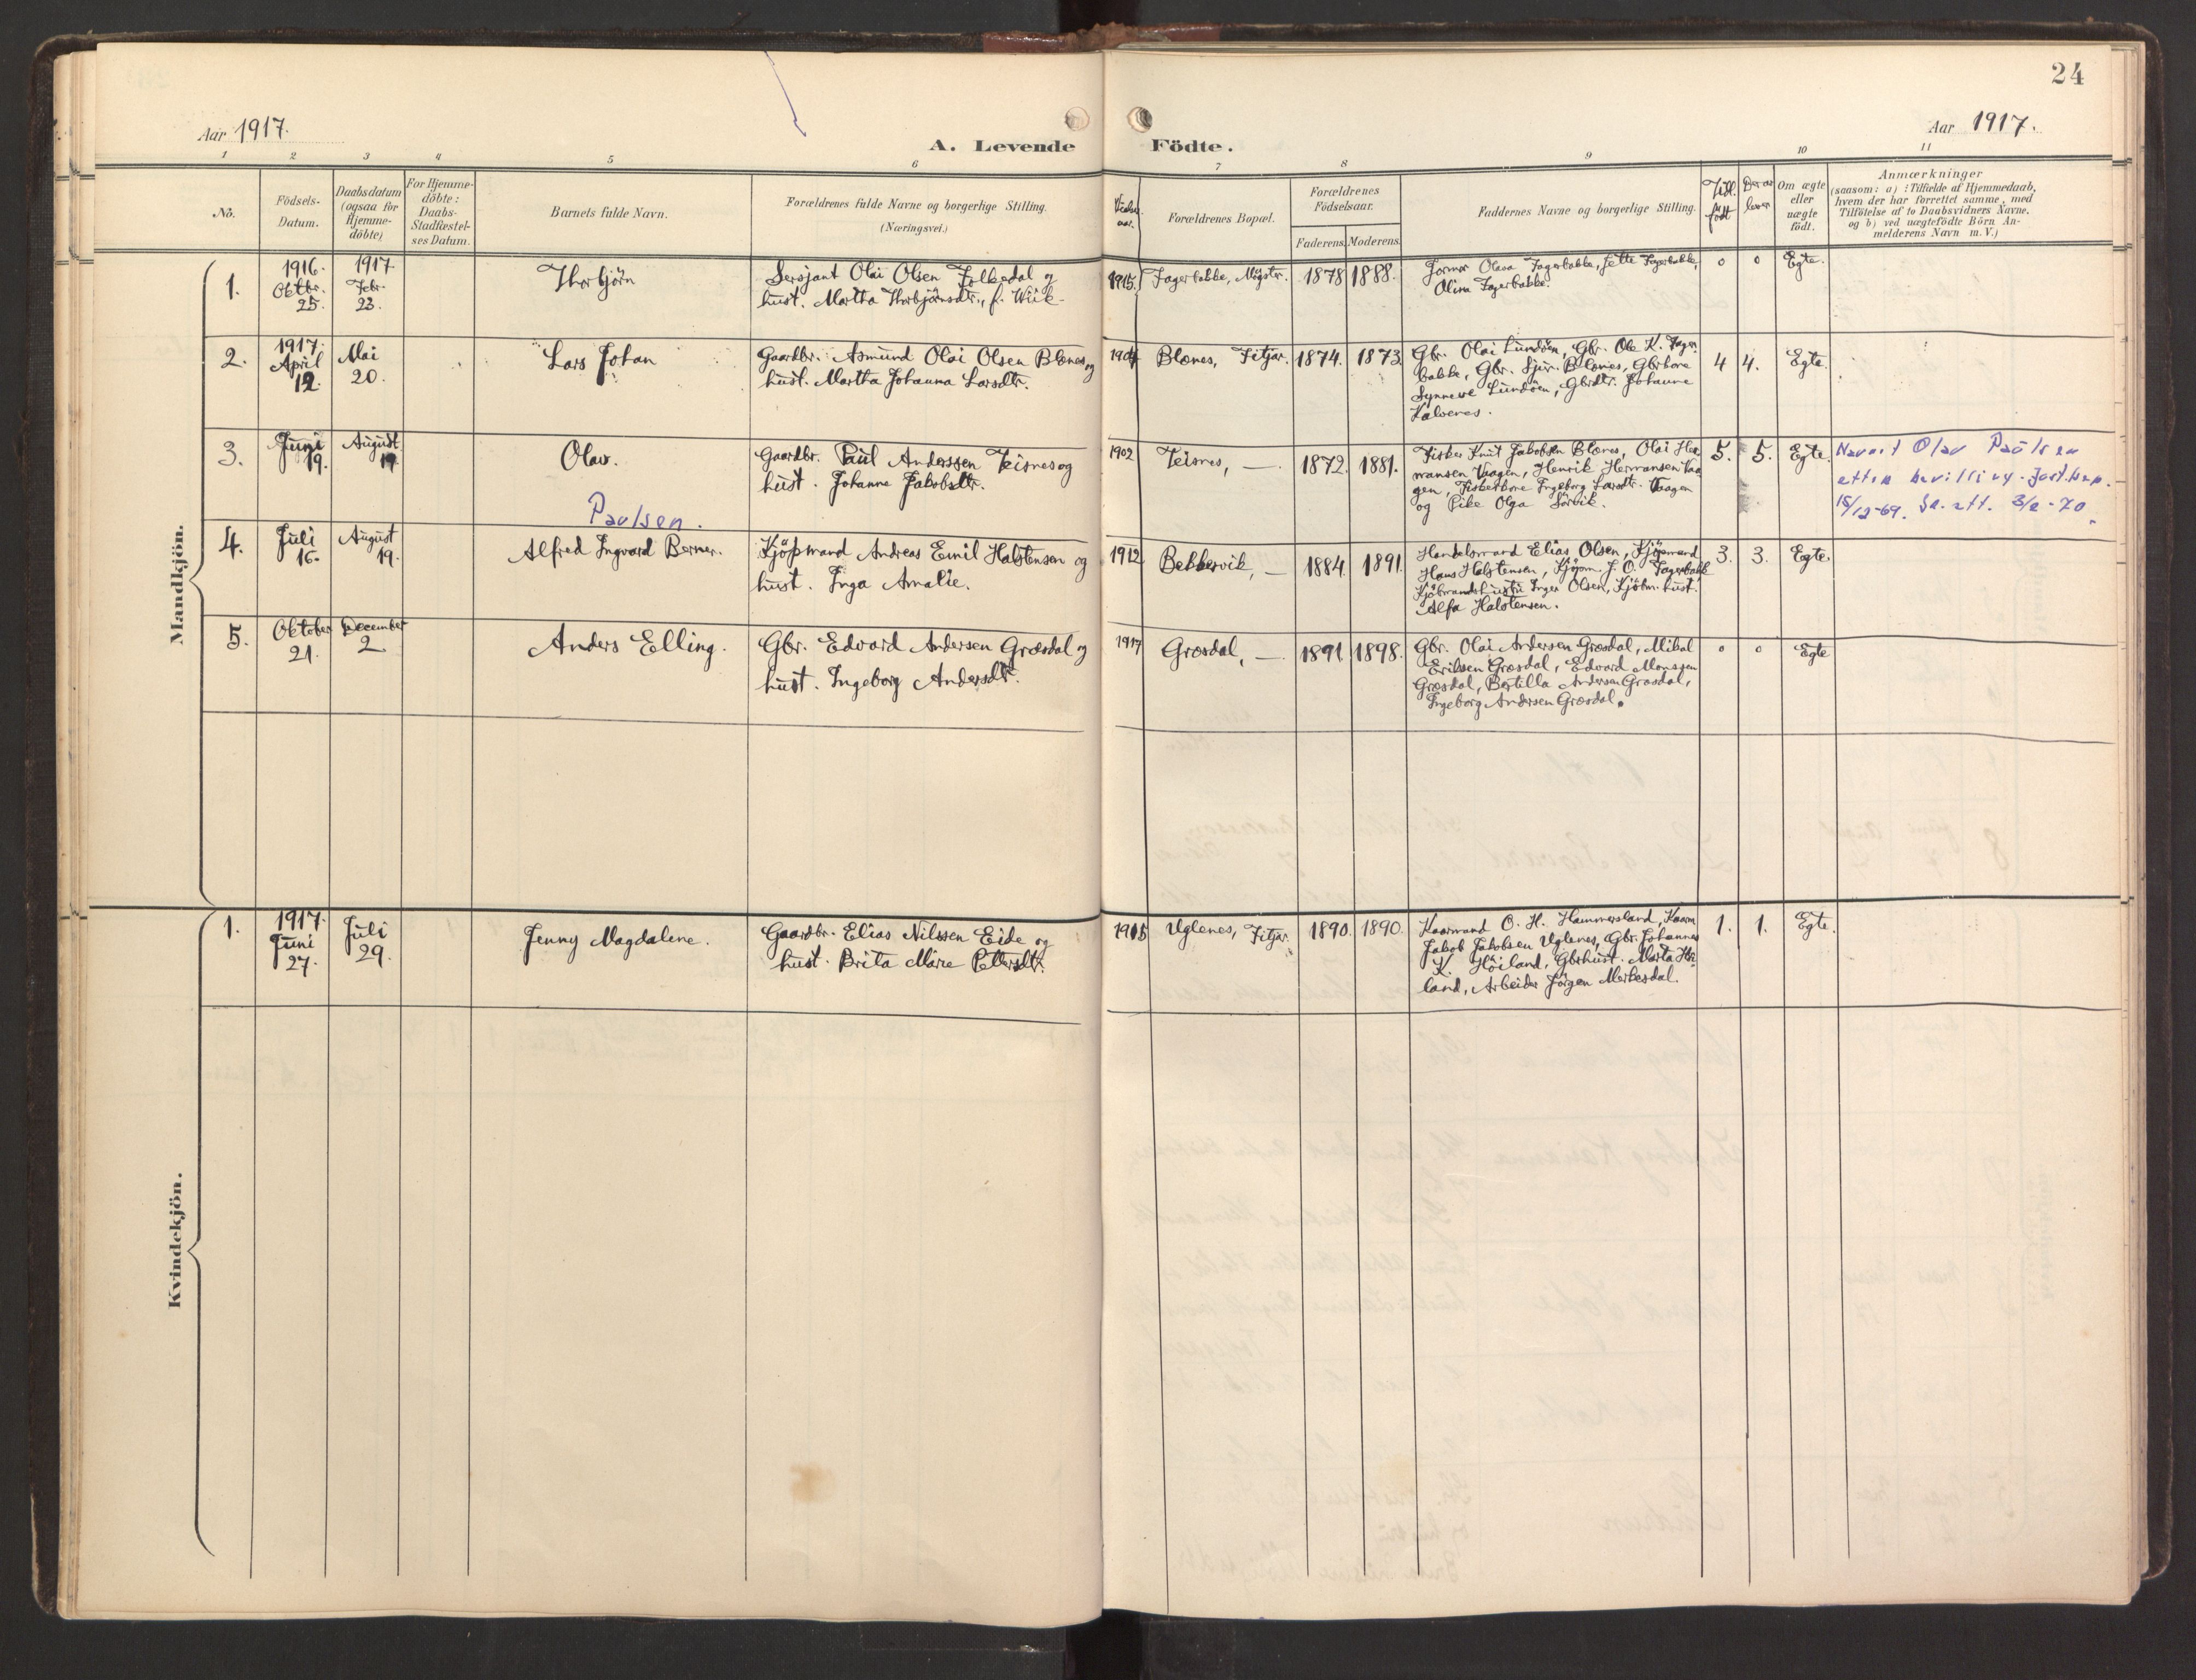 24
Aar 1917.
A. Levende Födte.
Aar 1917.
1 2 3 4 5 6 7 8 9 10 11
No.
Födsels-
Datum.
Daabsdatum
(ogsaa for
Hjemme-
döbte)
For Hjemme-
döbte:
Daabs-
Stadfæstel-
ses Datum.
Barnets fulde Navn.
Forældrenes fulde Navne og borgerlige Stilling.
(Næringsvei.)
Vielses
aar.
Forældrenes Bopæl.
Forældrenes
Födselsaar.
Faderens. Moderens.
Faddernes Navne og borgerlige Stilling.
Tidl.
født
Derav
lever
Om ægte
eller
uægte
födt.
Anmærkninger
(saasom: a) : Tilfælde af Hjemmedaab,
hvem der har forrettet samme, med
Tilföielse af to Daabsvidners Navne,
og b) ved uægtefödte Börn An-
melderens Navn m. V.)
Mandkjön.
1.
1916.
Oktbr.
25.
1917
Febr.
23.
Thorbjörn
Sersjant Olai Olsen Folkedal og
hust. Martha Thorbjörnsdtr., f. Wiik
1915.
Fagerbakke, Mögstr.
1878 1888.
Jormor Olava Fagerbakke, Jette Fagerbakke,
Olina Fagerbakke.
0 0 Egte.
2.
1917.
April
12.
Mai
20.
Lars Johan
Gaardbr. Asmund Olai Olsen Blænes og
hust. Martha Johanna Larsdtr.
1904
Blænes, Fitjar.
1874. 1873
Gbr. Olai Lundöen, Gbr. Ole K. Fager-
bakke, Gbr. Sjur Blænes, Gbrkone
Synneve Lundöen, Gbrdtr. Johanne
Kalvenes.
4 4. Egte.
3.
Juni
19.
August
19
Olav.
Paulsen.
Gaardbr. Paul Anderssen Teisnes og
hust. Johanne Jakobsdtr.
1902
Teisnes, —
1872. 1881.
Fisker Knut Jakobsen Blænes, Olai Her-
mansen Vaagen, Henrik Hermansen Vaa-
gen, Fiskerkone Ingeborg Larsdtr. Vaagen
og Pike Olga Sörvik.
5. 5. Egte.
Navnet Olav Paulsen
etter bevilling. Just.dep.
15/12-69. Se. att. 3/2-70.
4.
Juli
16.
August
19.
Alfred Ingvard Berner.
Kjöpmand Andreas Emil Halstensen og
hust. Inga Amalie.
1912
Bekkervik, —
1884. 1891
Handelsmand Elias Olsen, Kjöpmand
Hans Halstensen, Kjöpm. J. O. Fagerbakk
Kjöbmandshustru Inger Olsen, Kjöbm. hust.
Alfa Halstensen.
3. 3. Egte.
5.
Oktober
21.
December
2
Anders Elling.
Gbr. Edvard Andersen Græsdal og
hust. Ingeborg Andersdtr.
1917
Græsdal, —
1891 1898.
Gbr. Olai Andersen Græsdal, Mikal
Eriksen Græsdal, Edvard Monssen
Græsdal, Bertilla Andersen Græsdal,
Ingeborg Andersen Græsdal.
0 0 Egte
Kvindekjön.
1.
1917.
Juni
27.
Juli
29.
Jenny Magdalene.
Gaardbr. Elias Nilssen Eide og
hust. Brita Marie Pettersdtr.
1915
Uglenes, Fitjar.
1890. 1890.
Kaarmand O. H. Hammersland, Kaarm
Jakob Jakobsen Uglenes, Gbr. Johannes
K. Höiland, Gbrhust. Marta Höi-
land, Arbeider Jörgen Merkesdal.
1. 1. Egte.